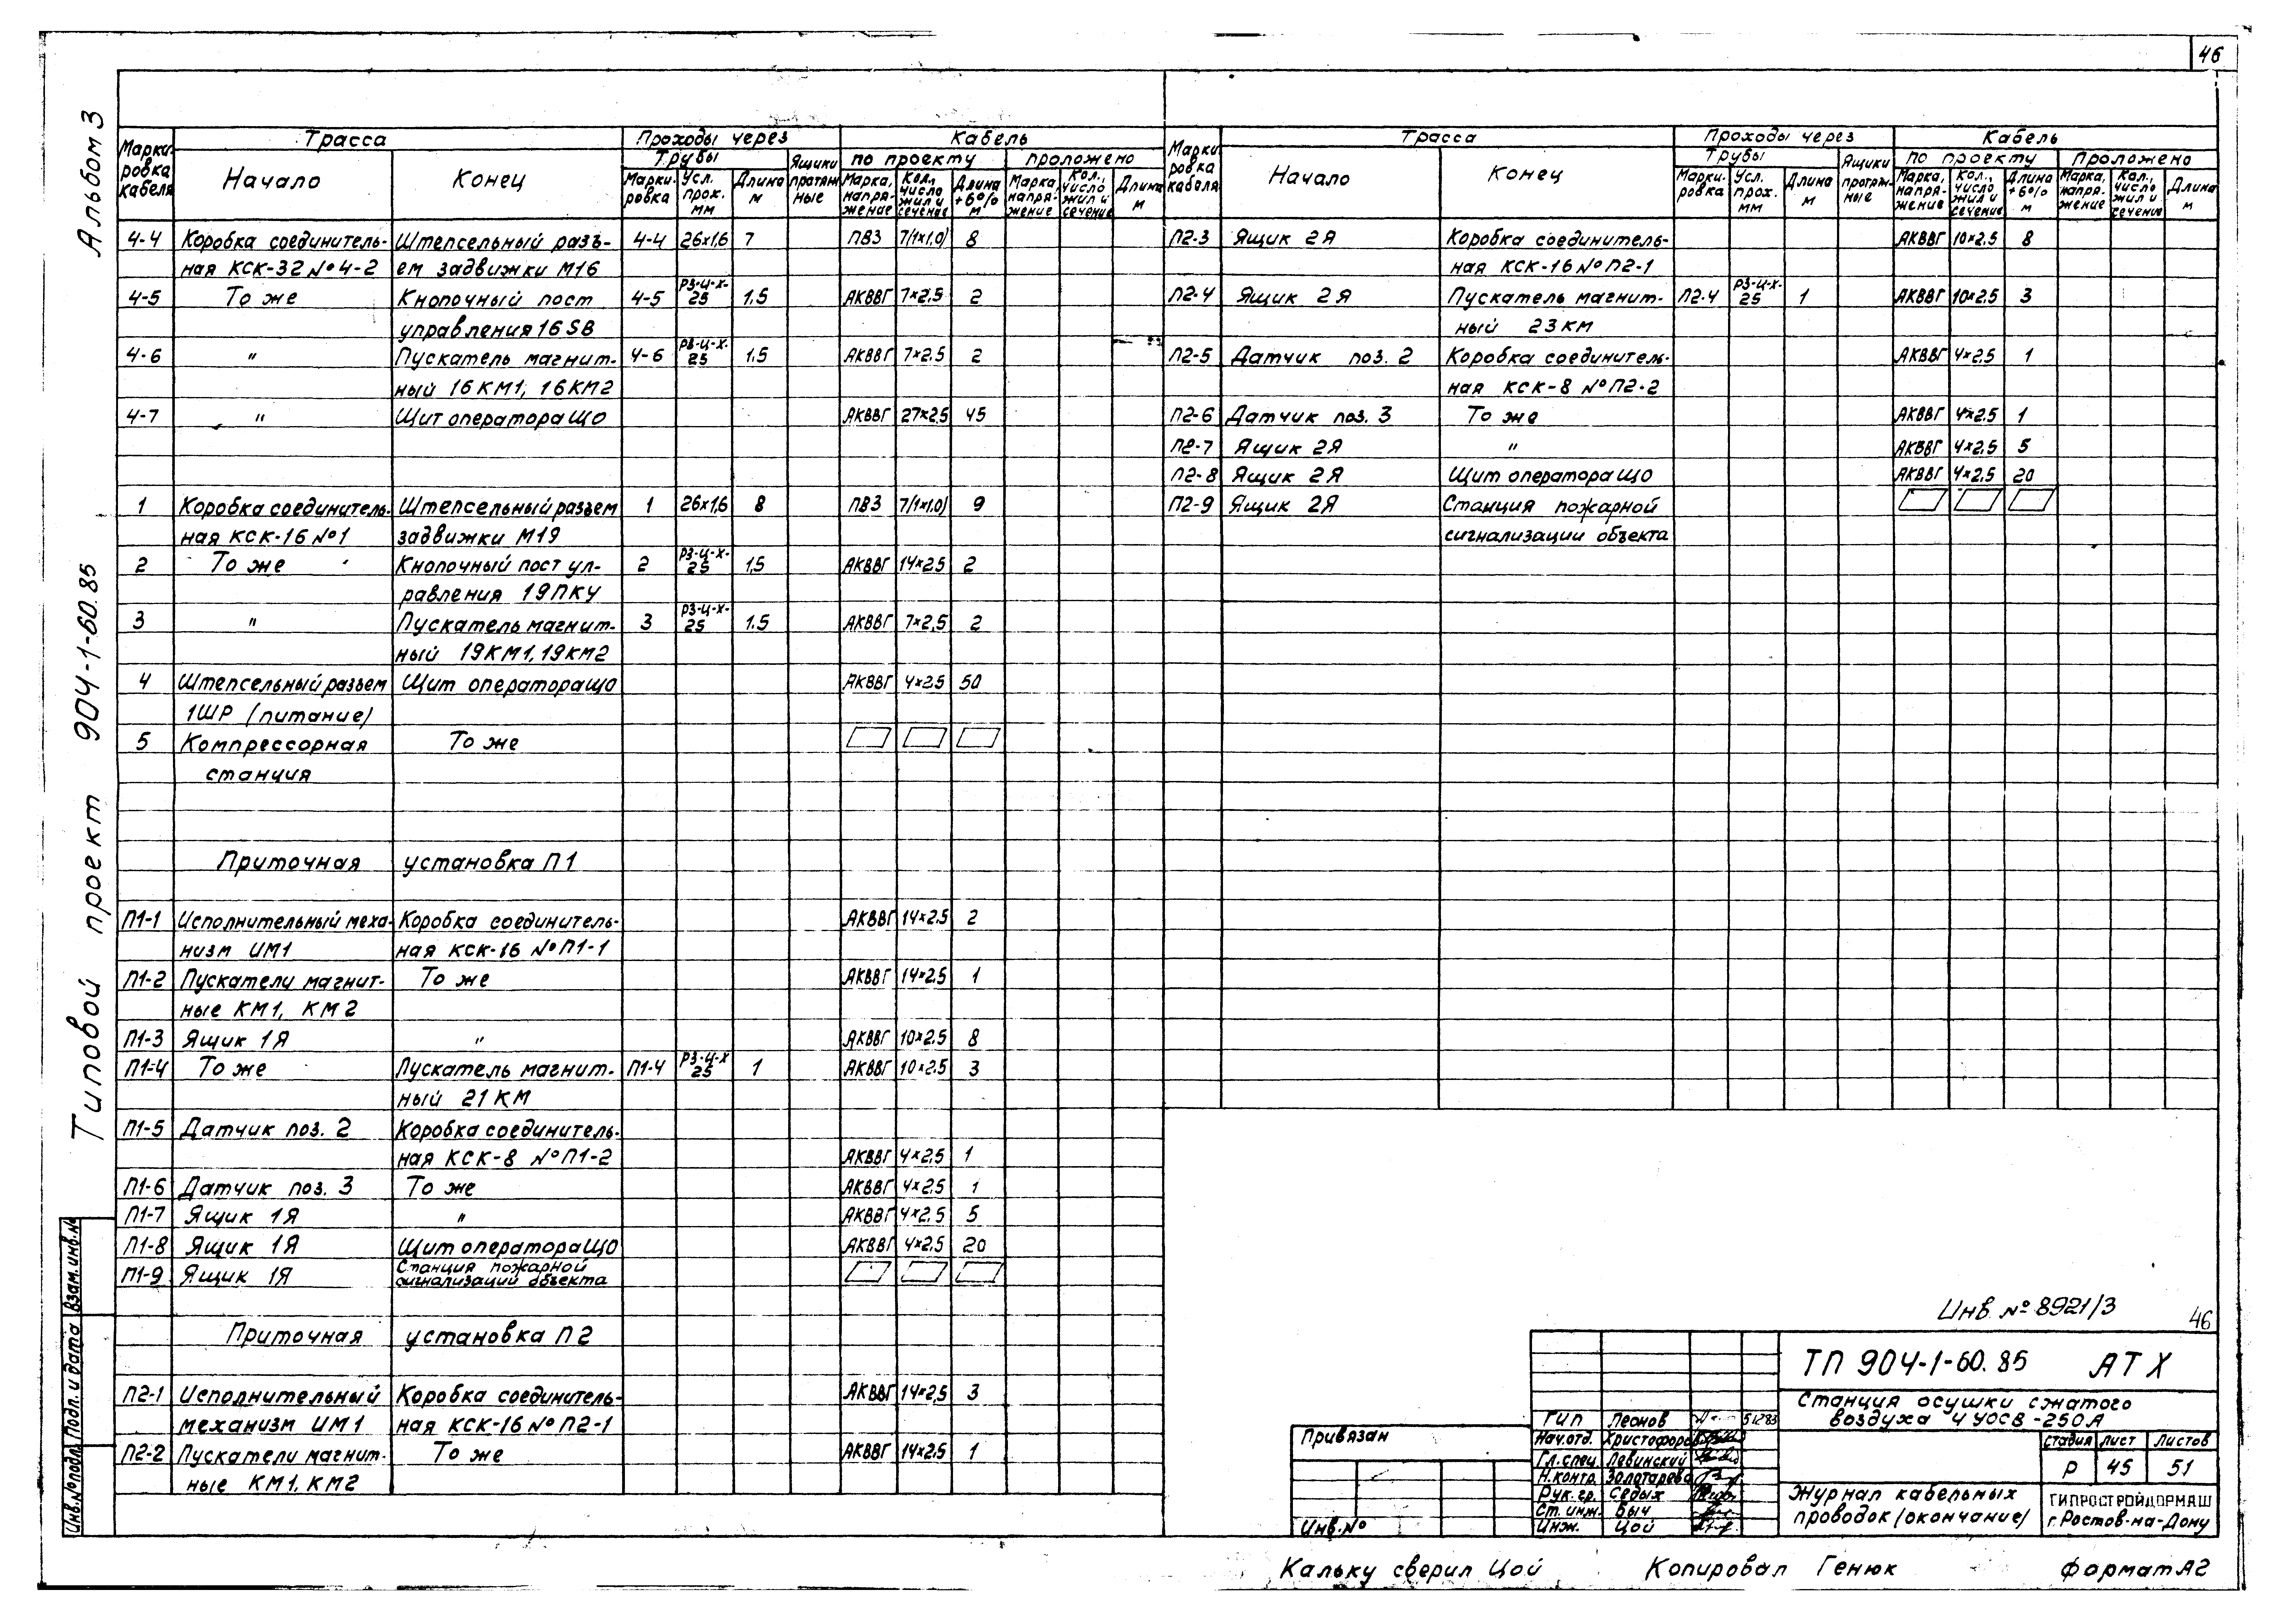 46
Альбом 3
Типовой проект 904-1-60.85
Взам. инв. №
Подп. и дата
Инв. № подл.
Марки-ровка кабеля | Трасса | Проходы через | Кабель
Начало | Конец | Трубы | Ящики протяжные | по проекту | проложено
Марки-ровка | Усл. прох. мм | Длина м | Марка, напря-жение | Кол., число жил и сечение | Длина +6% м | Марка, напря-жение | Кол., число жил и сечение | Длина м
4-4 Коробка соединитель- Штепсельный разъ- 4-4 26х1,6 7 ПВ3 7/1х1,0/ 8
ная КСК-32 №4-2 ем задвижки М16
4-5 То же Кнопочный пост 4-5 РЗ-Ц-Х-25 1,5 АКВВГ 7х2,5 2
управления 16SB
4-6 " Пускатель магнит- 4-6 РЗ-Ц-Х-25 1.5 АКВВГ 7х2,5 2
ный 16КМ1, 16КМ2
4-7 " Щит оператора ЩО АКВВГ 27х2,5 45
1 Коробка соединитель- Штепсельный разъем 1 26х1,6 8 ПВ3 7/1х1,0/ 9
ная КСК-16 №1 задвижки М19
2 То же Кнопочный пост уп- 2 РЗ-Ц-Х-25 1,5 АКВВГ 14х2,5 2
равления 19ПКУ
3 " Пускатель магнит- 3 РЗ-Ц-Х-25 1.5 АКВВГ 7х2,5 2
ный 19КМ1, 19КМ2
4 Штепсельный разъем Щит оператора ЩО АКВВГ 4х2,5 50
1ШР /питание/
5 Компрессорная То же
станция
Приточная установка П1
П1-1 Исполнительный меха- Коробка соединитель- АКВВГ 14х2,5 2
низм ИМ1 ная КСК-16 №П1-1
П1-2 Пускатели магнит- То же АКВВГ 14х2,5 1
ные КМ1, КМ2
П1-3 Ящик 1Я " АКВВГ 10х2,5 8
П1-4 То же Пускатель магнит- П1-4 РЗ-Ц-Х 25 1 АКВВГ 10х2,5 3
ный 21КМ
П1-5 Датчик поз. 2 Коробка соединитель-
ная КСК-8 №П1-2 АКВВГ 4х2,5 1
П1-6 Датчик поз. 3 То же АКВВГ 4х2,5 1
П1-7 Ящик 1Я " АКВВГ 4х2,5 5
П1-8 Ящик 1Я Щит оператора ЩО АКВВГ 4х2,5 20
П1-9 Ящик 1Я Станция пожарной
сигнализации объекта
Приточная установка П2
П2-1 Исполнительный Коробка соединитель- АКВВГ 14х2,5 3
механизм ИМ1 ная КСК-16 №П2-1
П2-2 Пускатели магнит- То же АКВВГ 14х2,5 1
ные КМ1, КМ2
Марки ровка кабеля | Трасса | Проходы через | Кабель
Начало | Конец | Трубы | Ящики протяжные | по проекту | проложено
Марки-ровка | Усл. прох. мм | Длина м | Марка, напря-жение | Кол., число жил и сечение | Длина +6% м | Марка, напря-жение | Кол., число жил и сечение | Длина м
П2-3 Ящик 2Я Коробка соединитель- АКВВГ 10х2,5 8
ная КСК-16 №П2-1
П2-4 Ящик 2Я Пускатель магнит- П2-4 РЗ-Ц-Х-25 1 АКВВГ 10х2,5 3
ный 23КМ
П2-5 Датчик поз. 2 Коробка соединитель- АКВВГ 4х2,5 1
ная КСК-8 №П2-2
П2-6 Датчик поз. 3 То же АКВВГ 4х2,5 1
П2-7 Ящик 2Я " АКВВГ 4х2,5 5
П2-8 Ящик 2Я Щит оператора ЩО АКВВГ 4х2,5 20
П2-9 Ящик 2Я Станция пожарной
сигнализации объекта
Инв. № 8921/3
46
ТП 904-1-60.85 АТХ
Станция осушки сжатого
воздуха 4УОСВ-250А
Привязан
Инв. №
ГИП Леонов
Нач.отд. Христофоров
Гл.спец. Левинский
Н.контр. Золотарева
Рук.гр. Седых
Ст. инж. Быч
Инж. Цой
стадия лист листов
Р 45 51
Журнал кабельных
проводок /окончание/
ГИПРОСТРОЙДОРМАШ
г.Ростов-на-Дону
Кальку сверил Цой Копировал Генюк Формат А2